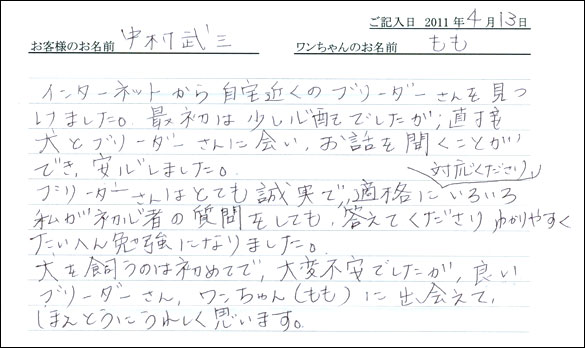 ご記入日 2011年4月13日
お客様のお名前 中村武三 ワンちゃんのお名前 もも
インターネットから自宅近くのブリーダーさんを見つ
けました。最初は少し心配でしたが、直接
犬とブリーダーさんに会い、お話を聞くことが
でき、安心しました。
対応くださり
ブリーダーさんはとても誠実で、適格にいろいろ
私が初心者の質問をしても、答えてくださりわかりやすく
たいへん勉強になりました。
犬を飼うのは初めてで、大変不安でしたが、良い
ブリーダーさん、ワンちゃん(もも)に出会えて、
ほんとうにうれしく思います。